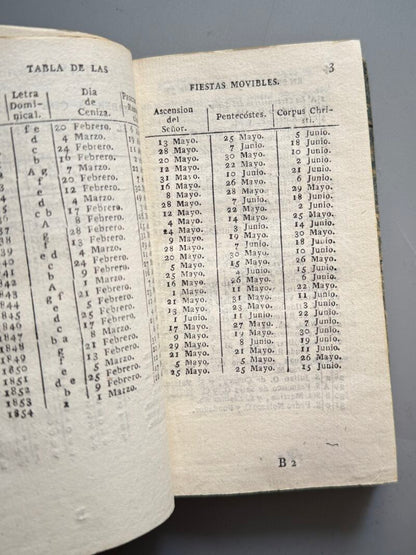 TABLA DE LAS
Letra Domi- nical.
Dia de Ceniza.
f e 20 Febrero.
d 4 Marzo.
c 24 Febrero.
b 16 Febrero.
A g 7 Marzo.
f 20 Febrero.
e 12 Febrero.
d 4 Marzo.
c b 17 Febrero.
A 8 Febrero.
g 28 Febrero.
f 13 Febrero.
e d 4 Marzo.
c 24 Febrero.
b 9 Febrero.
A 1 Marzo.
g f 21 Febrero.
e 5 Febrero.
d
c 17 Febrero.
b a 8 Marzo.
g 21 Febrero.
f 13 Febrero.
1851 e 5 Marzo.
1852 d 25 Febrero.
1853 9 Febrero.
1854 1 Marzo.
3
FIESTAS MOVIBLES.
Ascension del Señor.
Pentecóstes.
Corpus Chris- ti.
13 Mayo. 25 Mayo. 5 Junio.
28 Mayo. 7 Junio. 18 Junio.
20 Mayo. 30 Mayo. 10 Junio.
12 Mayo. 22 Mayo. 2 Junio.
31 Mayo. 10 Junio. 21 Junio.
16 Mayo. 26 Mayo. 6 Junio.
8 Mayo. 18 Mayo. 29 Mayo.
28 Mayo. 7 Junio. 18 Junio.
12 Mayo. 22 Mayo. 2 Junio.
4 Mayo. 14 Mayo. 25 Mayo.
24 Mayo. 3 Junio. 14 Junio.
9 Mayo. 19 Mayo. 30 Mayo.
28 Mayo. 7 Junio. 18 Junio.
20 Mayo. 30 Mayo. 10 Junio.
5 Mayo. 15 Mayo. 26 Mayo.
25 Mayo. 4 Junio. 15 Junio.
16 Mayo. 26 Mayo. 6 Junio.
1 Mayo. 11 Mayo. 22 Mayo.
21 Mayo. 31 Mayo. 11 Junio.
13 Mayo. 23 Mayo. 3 Junio.
1 Junio. 11 Junio. 22 Junio.
17 Mayo. 27 Mayo. 7 Junio.
9 Mayo. 19 Mayo. 30 Mayo.
29 Mayo. 8 Junio. 19 Junio.
21 Mayo. 31 Mayo. 11 Junio.
5 Mayo. 15 Mayo. 26 Mayo.
25 Mayo. 15 Junio.
B 2